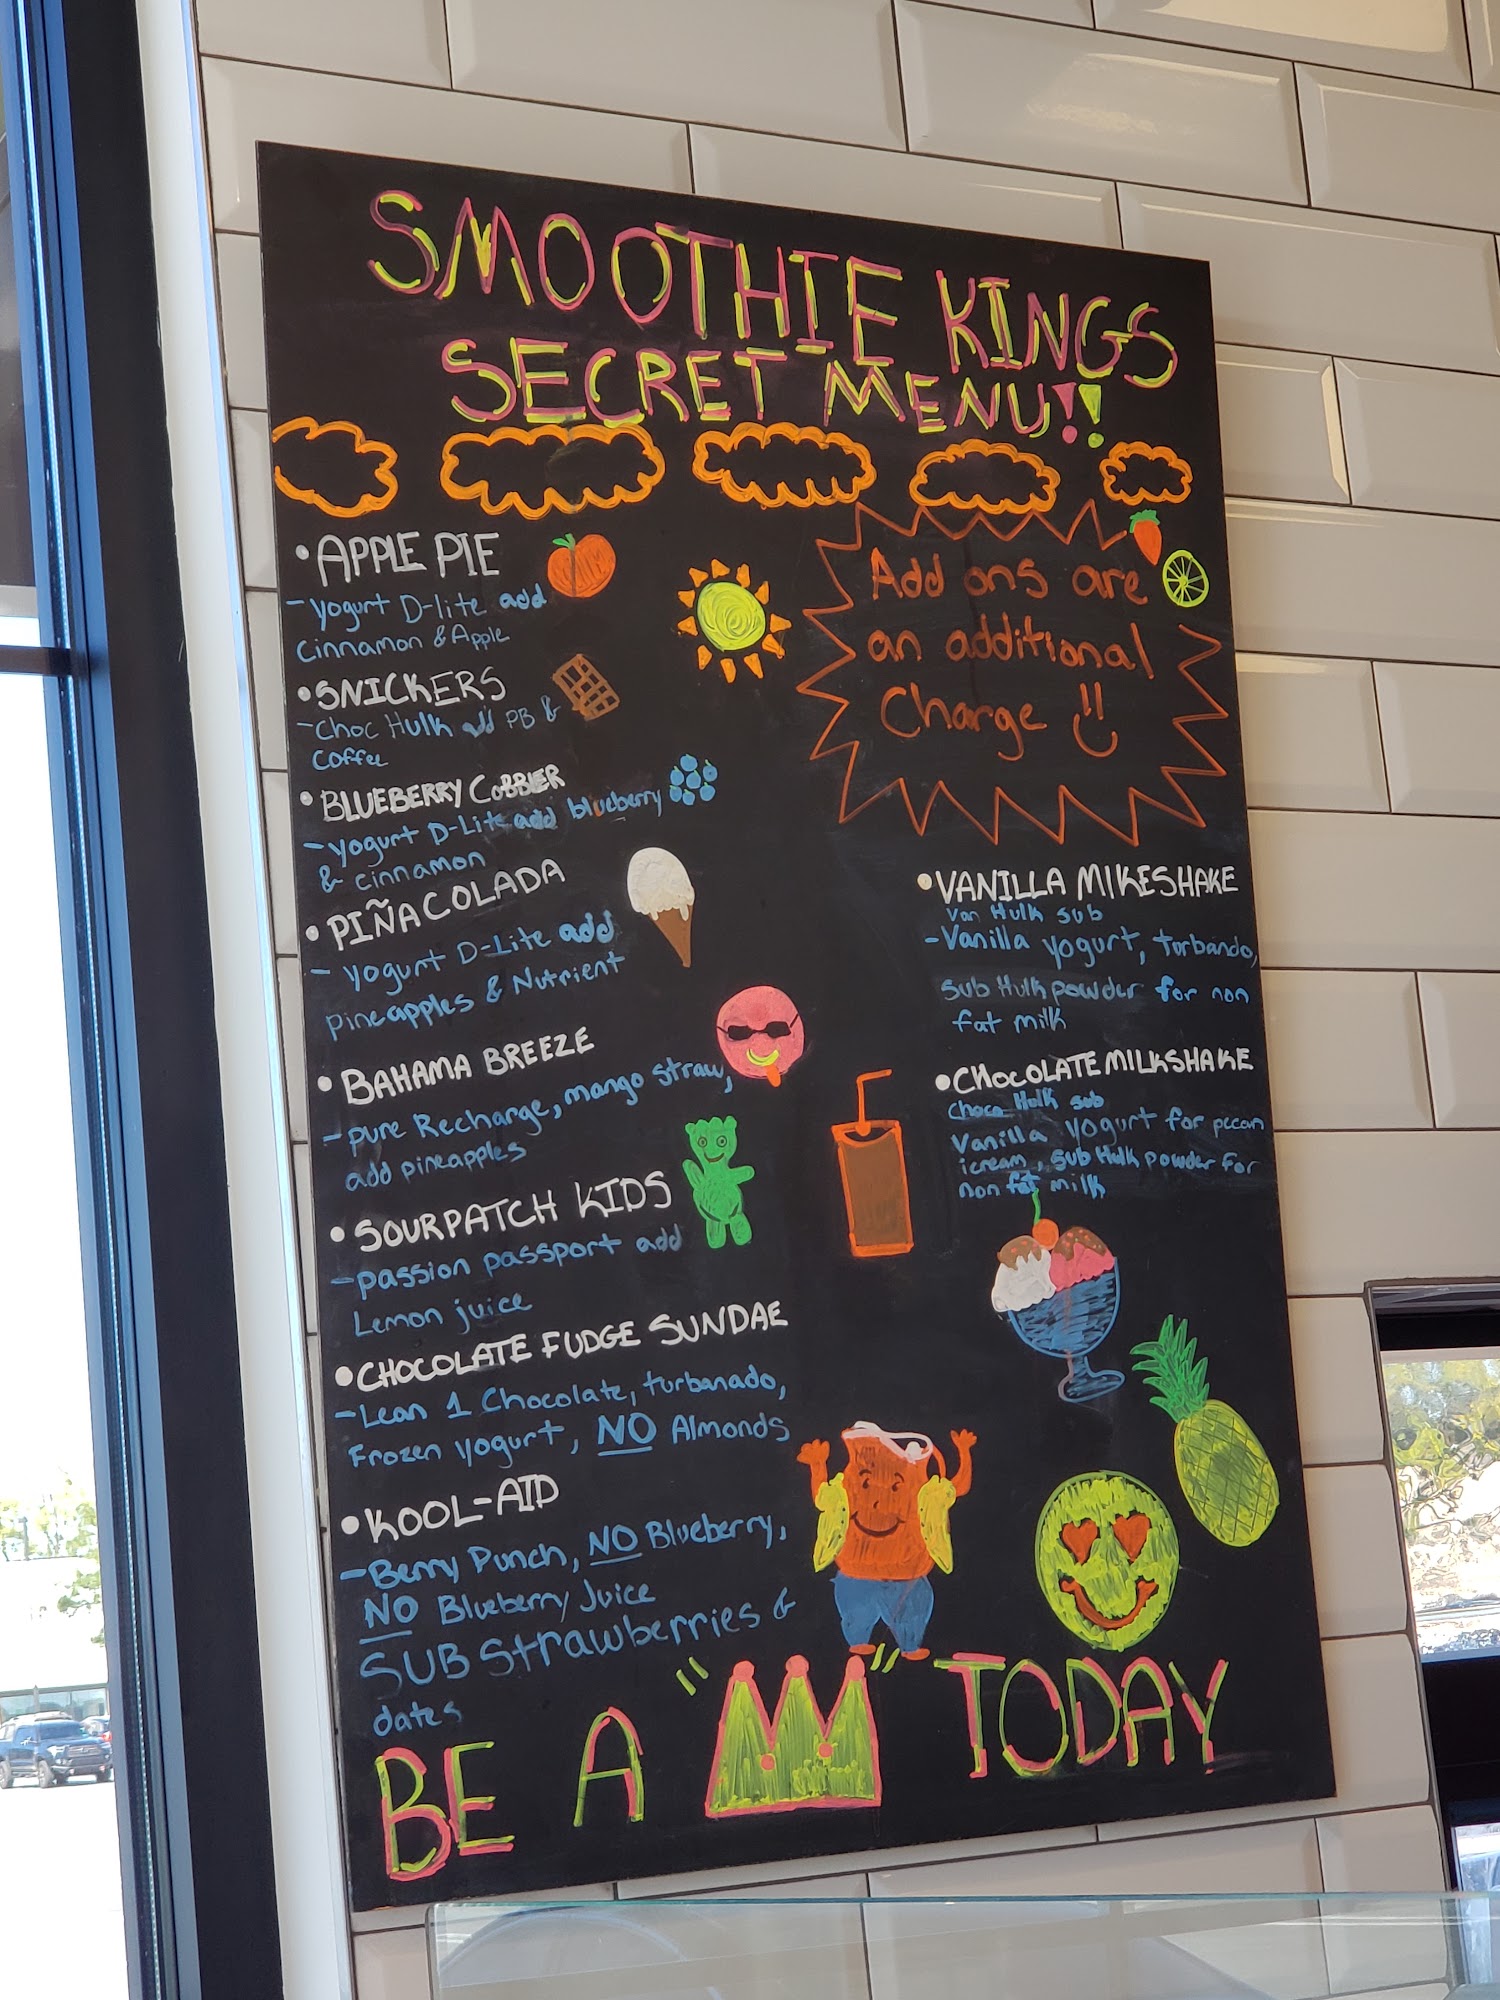 SMOOTHIE KINGS
SECRET MENU!!
• APPLE PIE
- yogurt D-lite add
cinnamon & Apple
• SNICKERS
- Choc Hulk add PB &
coffee
• BLUEBERRY COBBLER
- yogurt D-Lite add blueberry
& cinnamon
• PIÑA COLADA
- yogurt D-Lite add
pineapples & Nutrient
• BAHAMA BREEZE
- pure Recharge, mango straw,
add pineapples
• SOURPATCH KIDS
- passion passport add
Lemon juice
• CHOCOLATE FUDGE SUNDAE
- Lean 1 Chocolate, turbanado,
Frozen yogurt, NO Almonds
• KOOL-AID
- Berry Punch, NO Blueberry,
NO Blueberry Juice
SUB Strawberries &
dates
Add ons are
an additional
Charge
• VANILLA MIKESHAKE
Van Hulk sub
- Vanilla yogurt, torbando,
sub Hulk powder for non
fat milk
• CHOCOLATE MILKSHAKE
Choco Hulk sub
Vanilla yogurt for pecan
icream, sub Hulk powder for
non fat milk
BE A " " TODAY